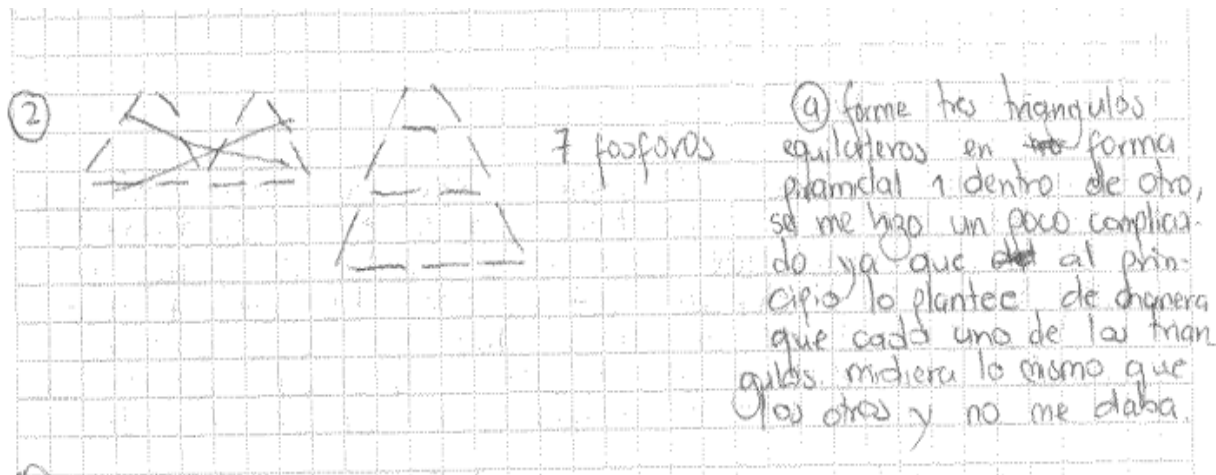 2
7 fosforos
a forme tres triangulos
equilateros en forma
piramidal 1 dentro de otro,
se me hizo un poco complica-
do ya que al prin-
cipio lo plantee de manera
que cada uno de los trian
gulos midiera lo mismo que
los otros y no me daba.